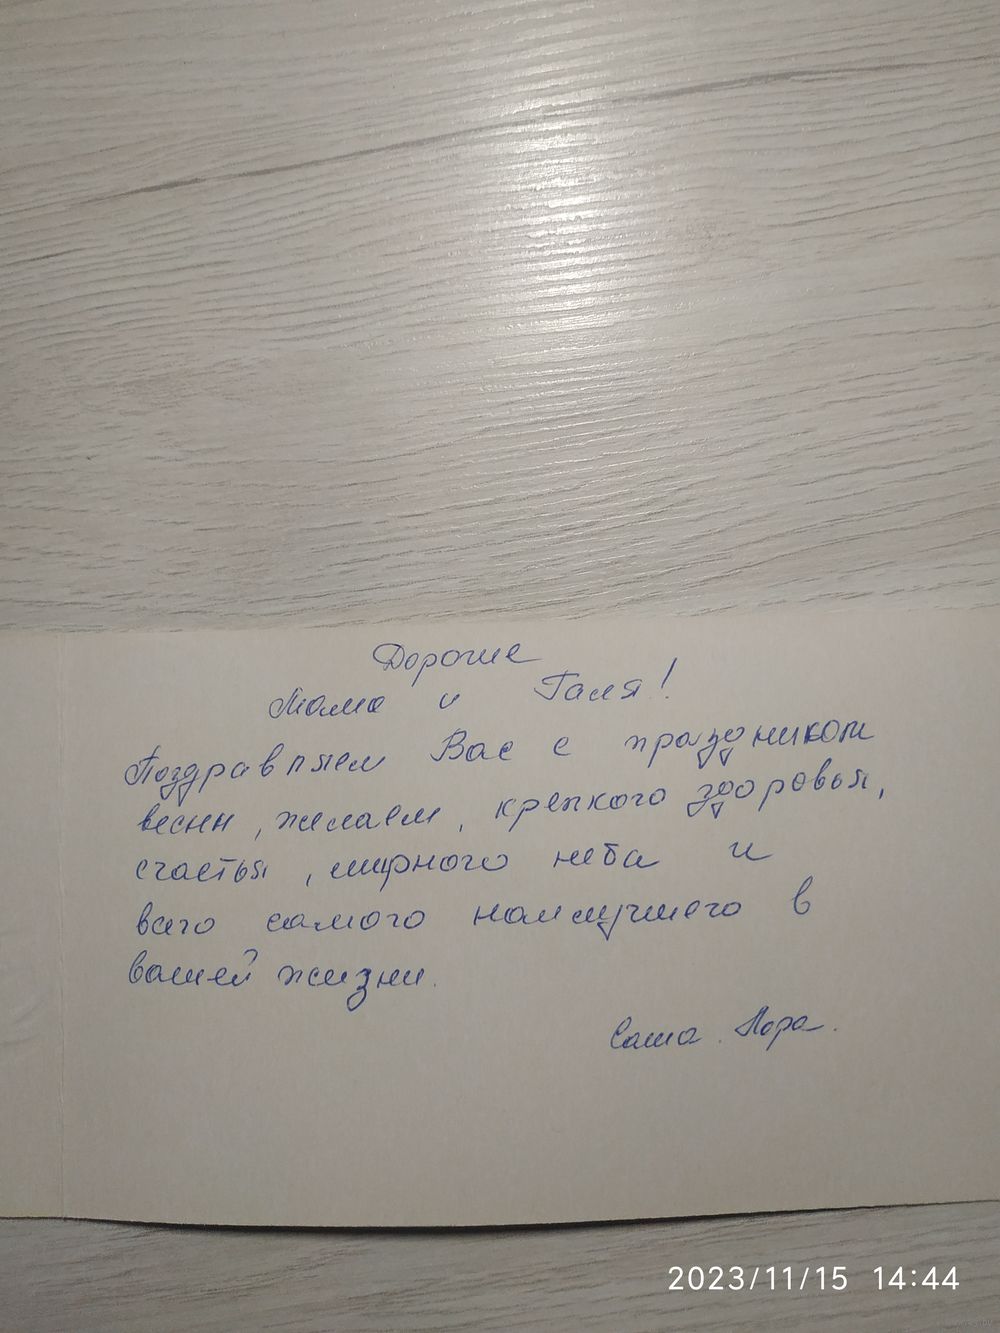 Дорогие
Мама и Галя!
Поздравляем Вас с праздником
весны, желаем, крепкого здоровья,
счастья, мирного неба и
всего самого наилучшего в
вашей жизни.
Саша. Лора.
2023/11/15 14:44